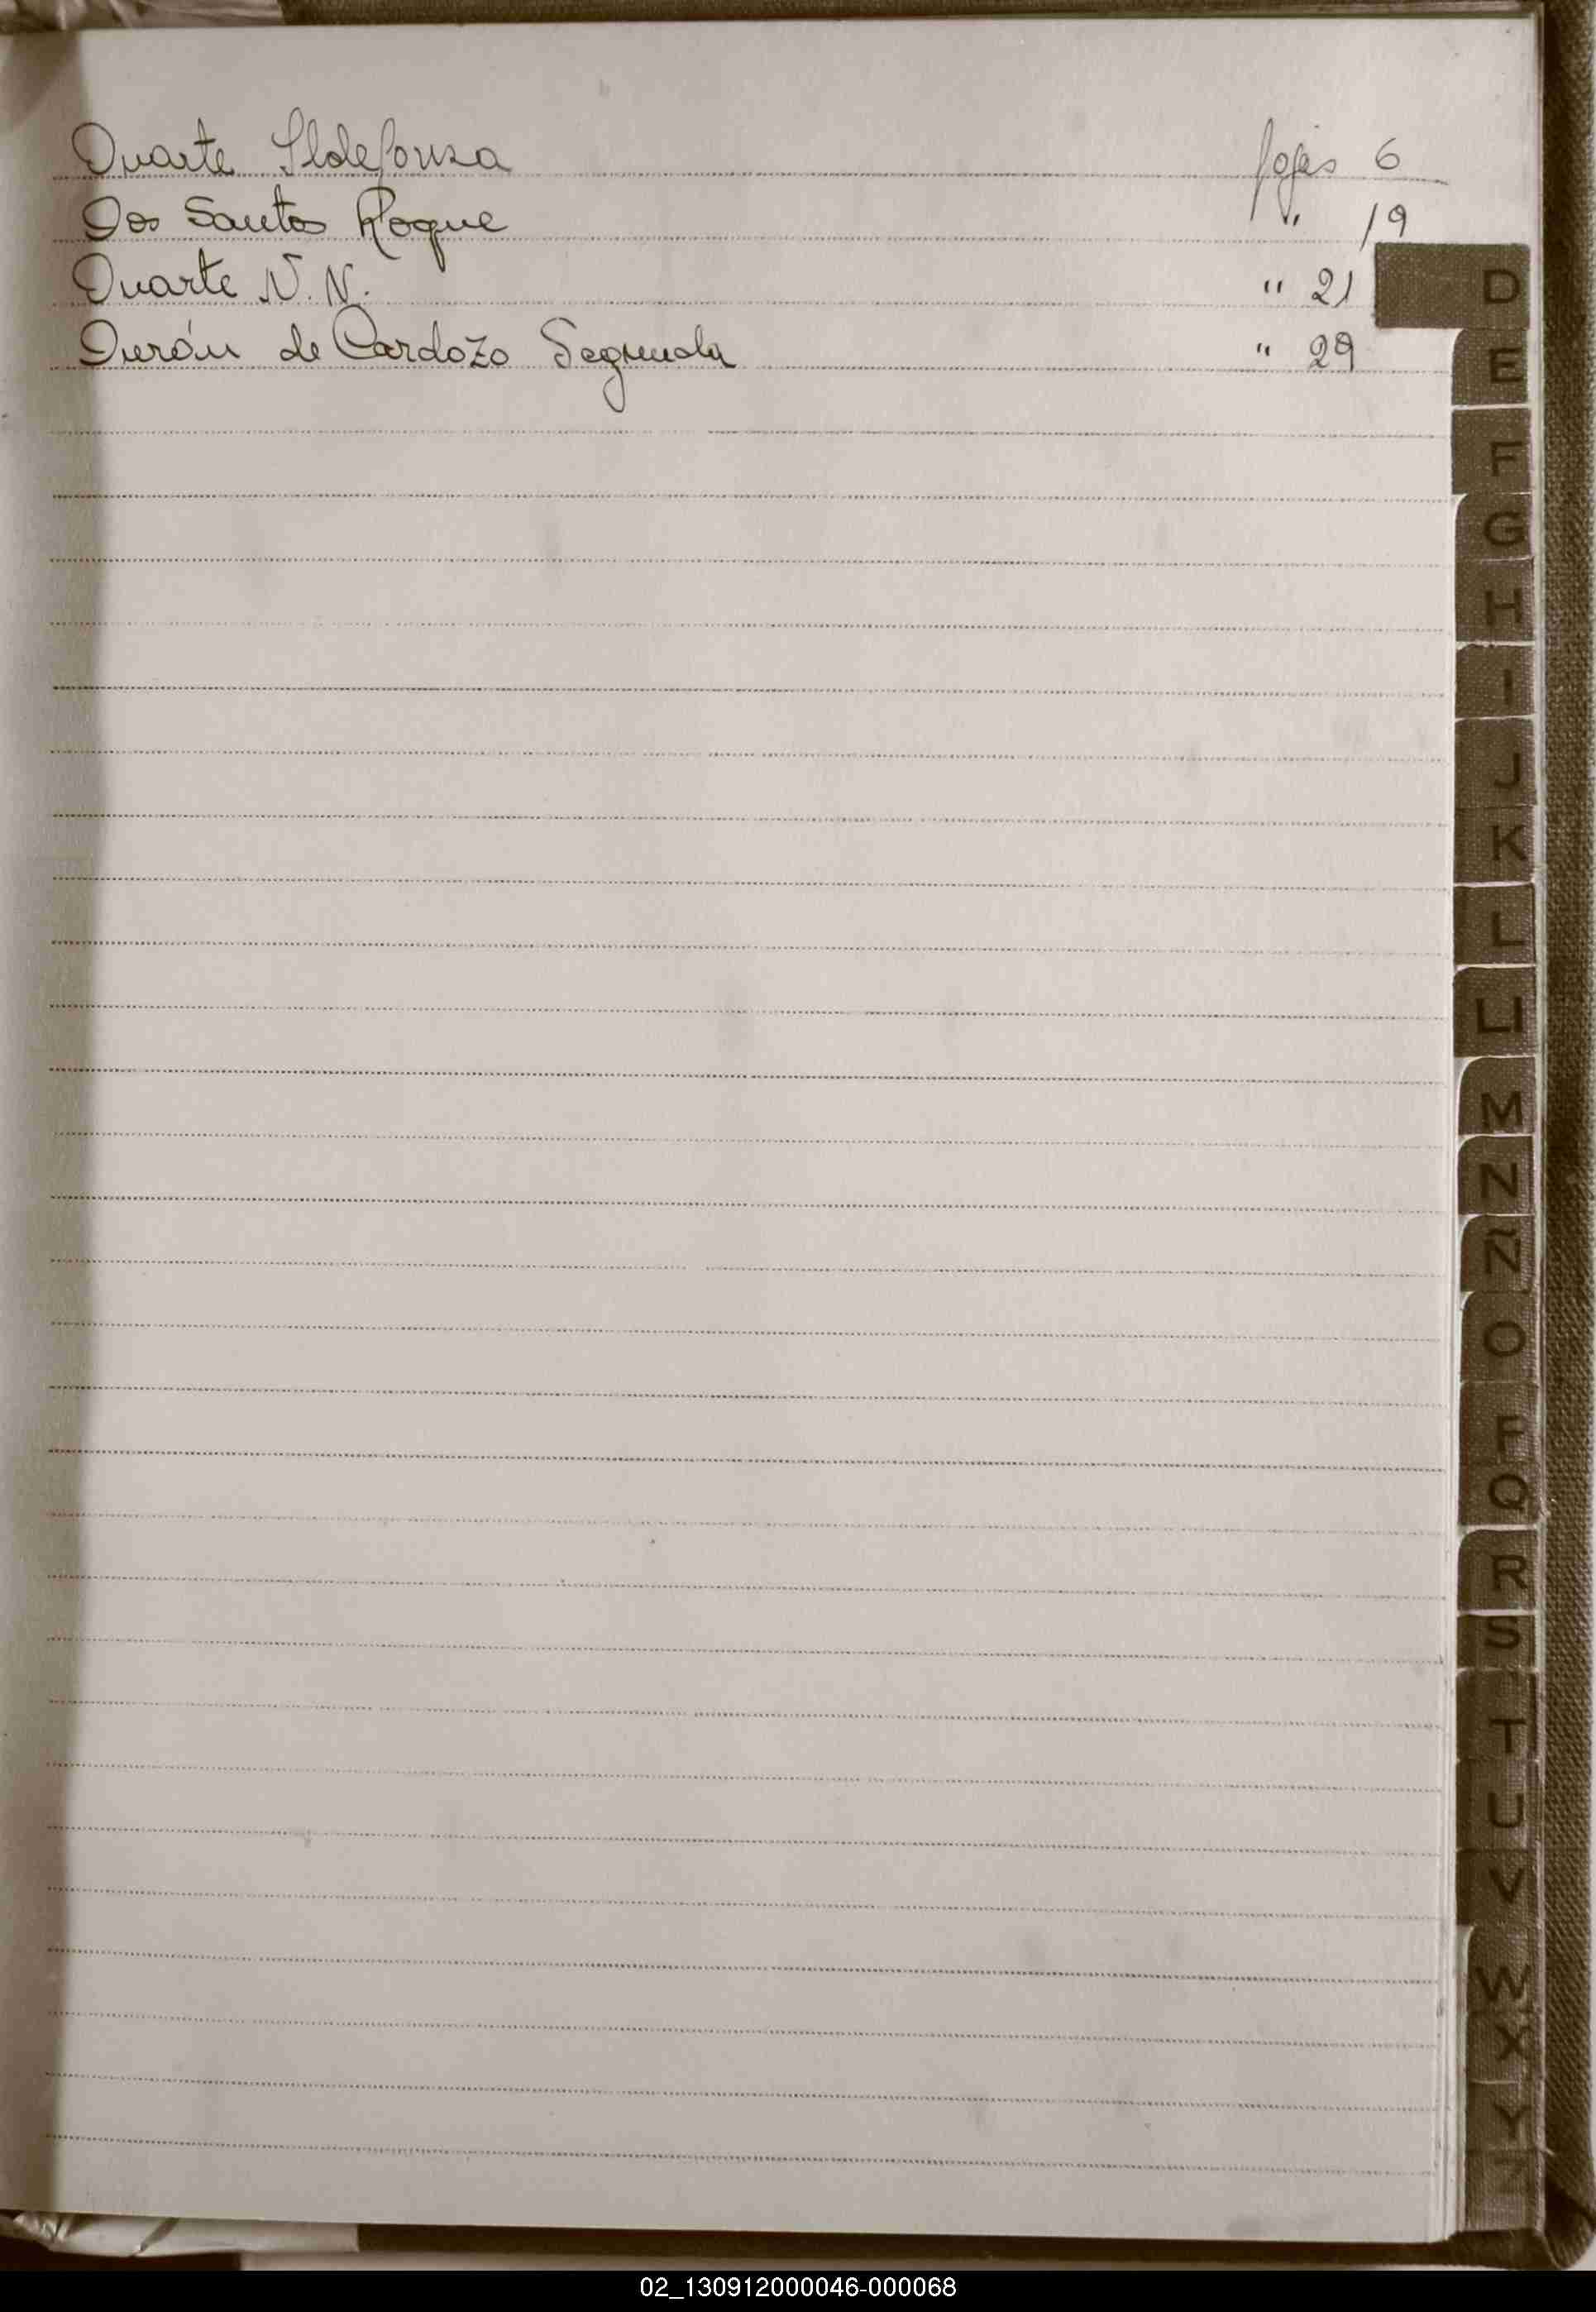 Duarte Ildefonsa fojas 6
Dos Santos Roque " 19
Duarte N. N. " 21
Durón de Cardozo Segunda " 29
D
E
F
G
H
I
J
K
L
LL
M
N
Ñ
O
P
Q
R
S
T
U
V
W
X
Y
Z
02_130912000046-000068